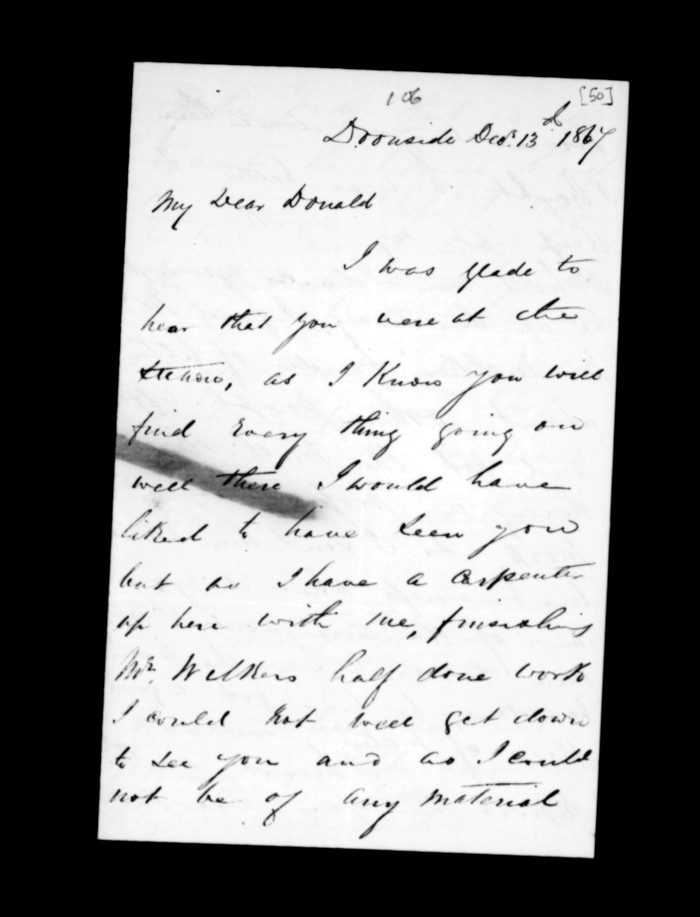 106 [50]
Doonside Decr. 13th 1867
My Dear Donald
I was glade to
hear that you were at the
Station, as I Know you will
find Every thing going on
well there I would have
liked to have Seen you
but as I have a Carpenter
up here with me, finishing
Mr. Wilkers half done work
I could not well get down
to See you and as I could
not be of any material